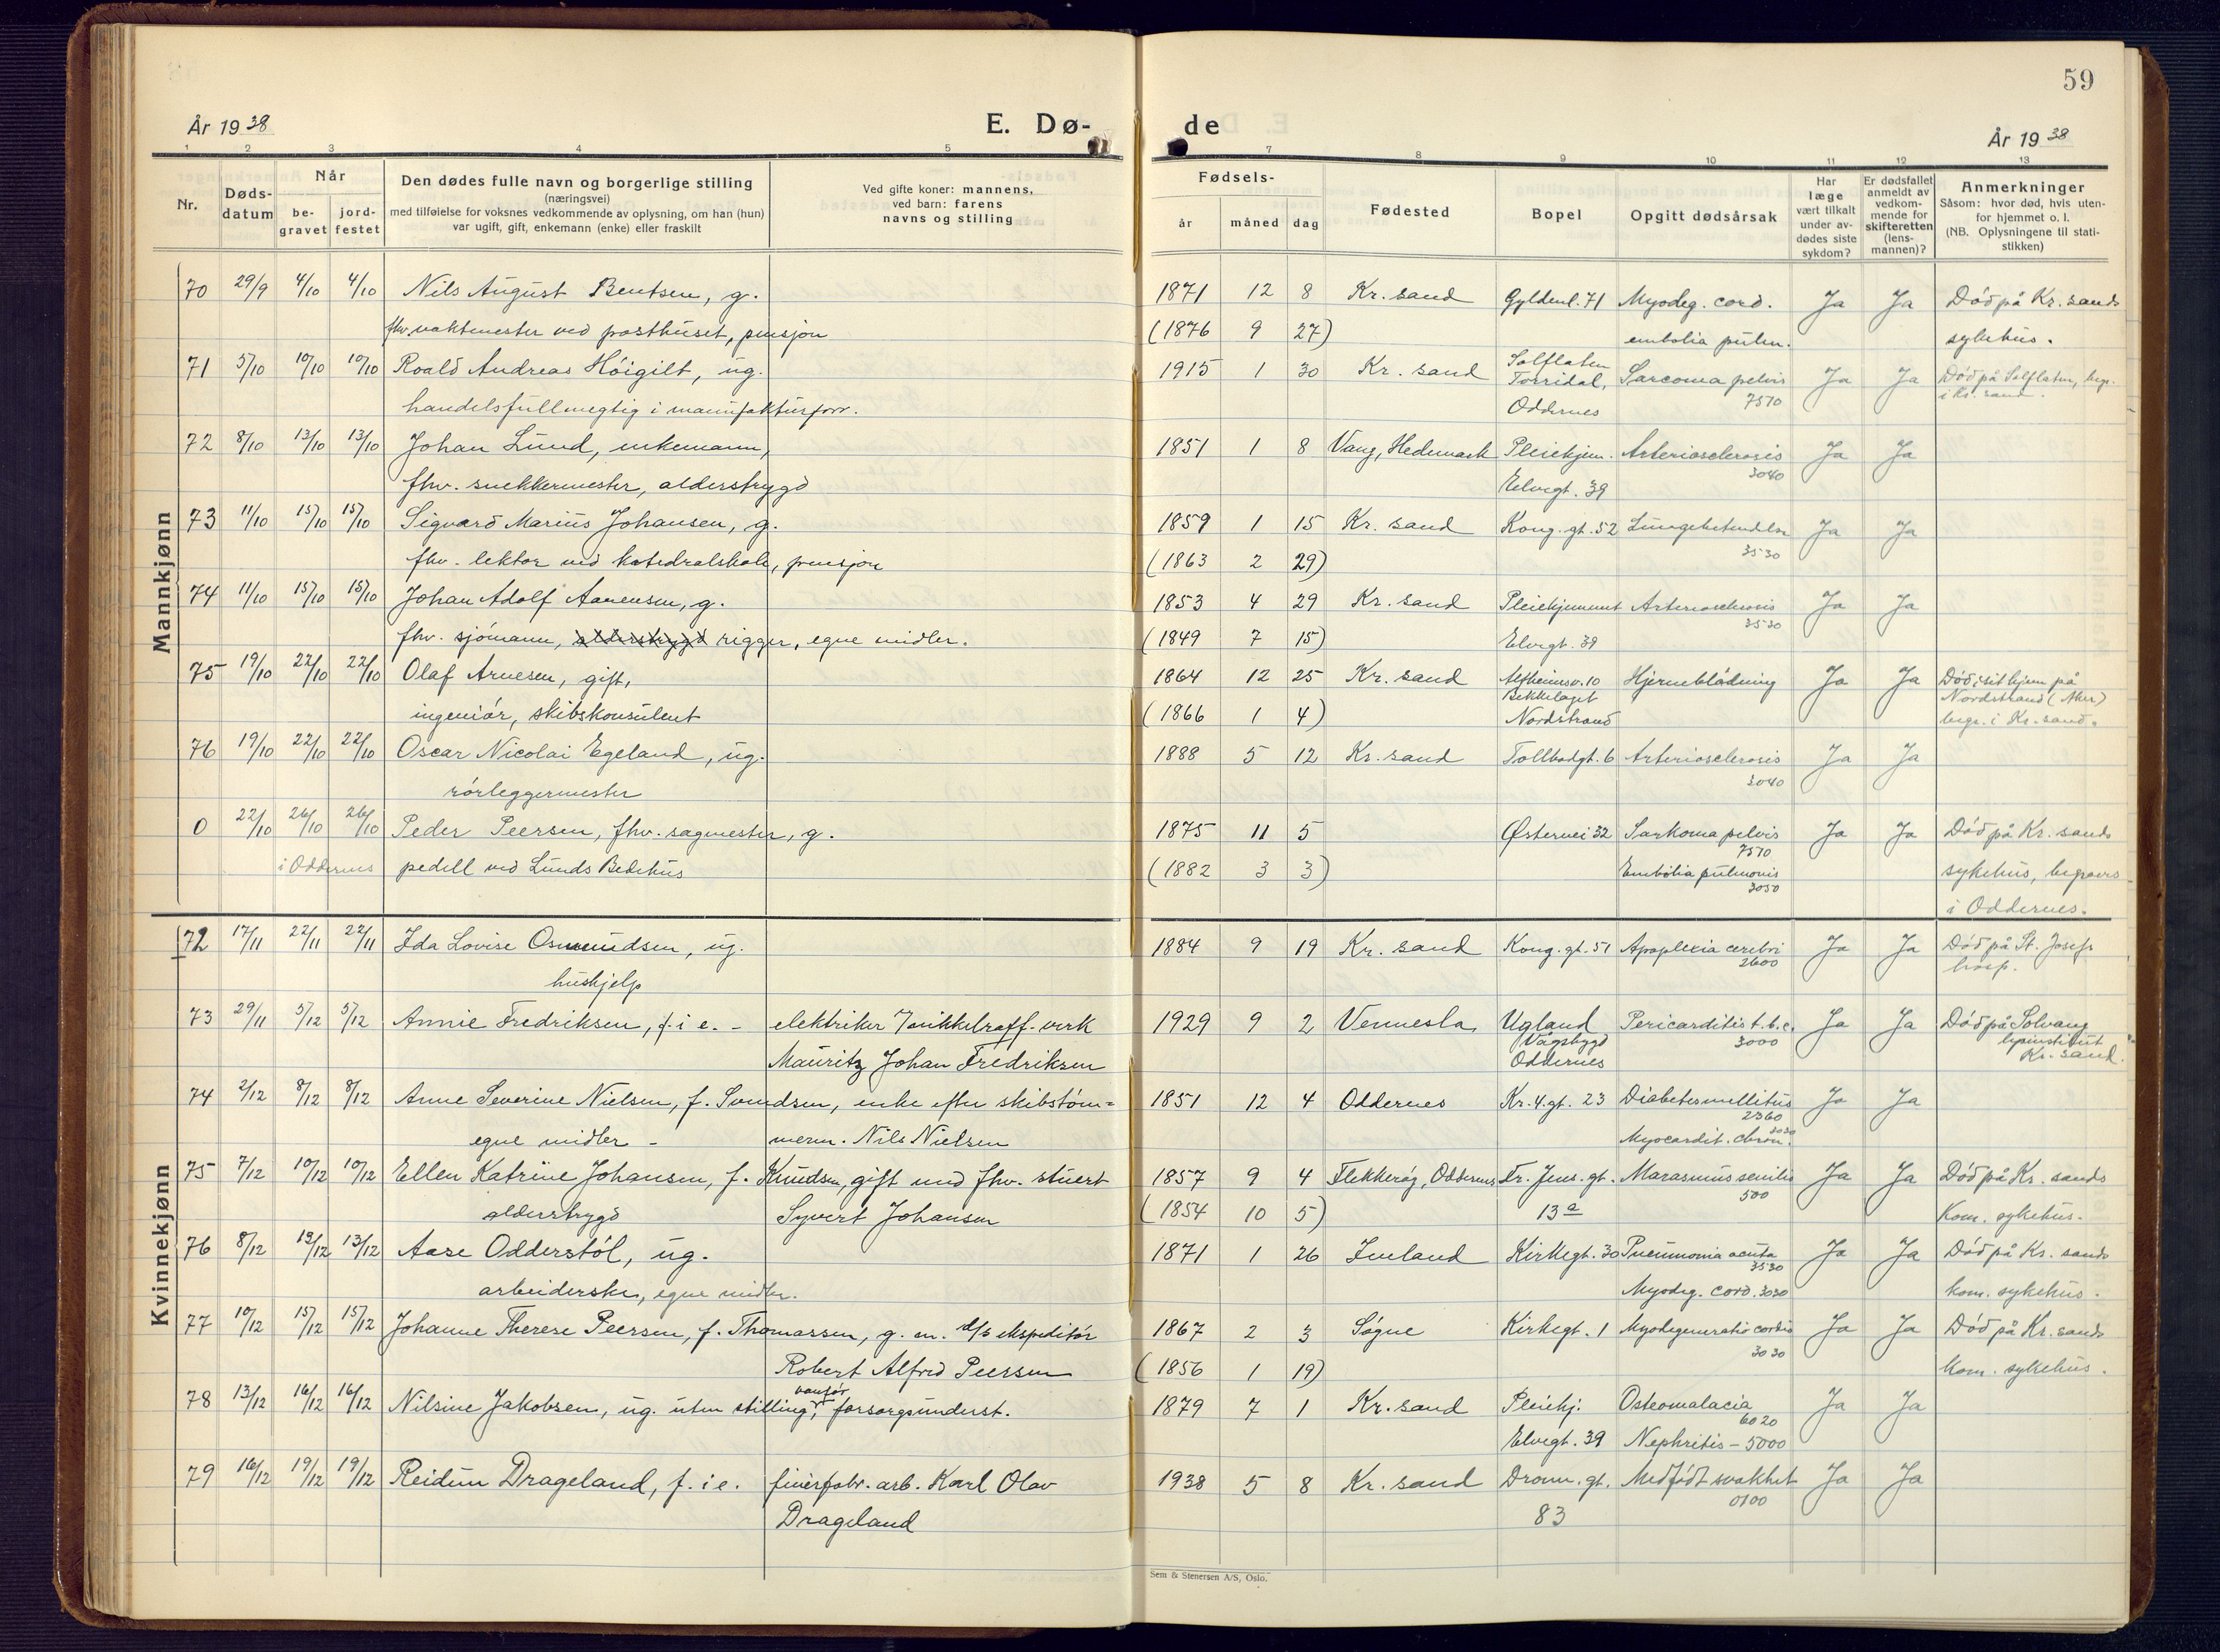 59
År 1938
E. Dø-
de
År 1938
1 2 3 4 5 7 8 9 10 11 12 13
Nr.
Døds-
datum
Når
be-
gravet
jord-
festet
Den dødes fulle navn og borgerlige stilling
(næringsvei)
med tilføielse for voksnes vedkommende av oplysning, om han (hun)
var ugift, gift, enkemann (enke) eller fraskilt
Ved gifte koner: mannens,
ved barn: farens
navns og stilling
Fødsels-
år måned dag
Fødested
Bopel
Opgitt dødsårsak
Har
læge
vært tilkalt
under av-
dødes siste
sykdom?
Er dødsfallet
anmeldt av
vedkom-
mende for
skifteretten
(lens-
mannen)?
Anmerkninger
Såsom: hvor død, hvis uten-
for hjemmet o. l.
(NB. Oplysningene til stati-
stikken)
Mannkjønn
70 29/9 4/10 4/10 Nils August Bentsen, g. 1871 12 8 Kr. sand Gyldenl. 71 Myodeg. cord. Ja Ja Död på Kr. sands
fhv. vaktmester ved posthuset, pensjon (1876 9 27) embolia pulm. sykehus.
71 5/10 10/10 10/10 Roald Andreas Höigilt, ug. 1915 1 30 Kr. sand Solflaten Torridal, Sarcoma pelvis 7570 Ja Ja Död på Solflaten, begr. i Kr. sand.
handelsfullmegtig i manufakturforr. Oddernes
72 8/10 13/10 13/10 Johan Lund, enkemann, 1851 1 8 Vang, Hedemark Pleiehjem. Arteriosclerosis 3040 Ja Ja
fhv. snekkermester, alderstrygd Elvegt. 39
73 11/10 15/10 15/10 Sigvard Marius Johansen, g. 1859 1 15 Kr. sand Kong. gt. 52 Lungebetendelse 3530 Ja Ja
fhv. lektor ved katedralskole, pensjon (1863 2 29)
74 11/10 15/10 15/10 Johan Adolf Aanensen, g. 1853 4 29 Kr. sand Pleiehjemmet Arteriosclerosis 3530 Ja Ja
fhv. sjömann, alderstrygd rigger, egne midler. (1849 7 15) Elvegt. 39
75 19/10 22/10 22/10 Olaf Arnesen, gift, 1864 12 25 Kr. sand Alfheimsv. 10 Bekkelaget Hjerneblödning Ja Ja Död i sit hjem på Nordstrand (Aker)
ingeniör, skibskonsulent (1866 1 4) Nordstrand begr. i Kr. sand.
76 19/10 22/10 22/10 Oscar Nicolai Egeland, ug. 1888 5 12 Kr. sand Tollbodgt. 6 Arteriosclerosis 3040 Ja Ja
rörleggermester
0 22/10 26/10 26/10 Peder Peersen, fhv. sagmester, g. 1875 11 5 Østervei 32 Sarkoma pelvis 7570 Ja Ja Död på Kr. sands
i Oddernes pedell ved Lunds Bedehus (1882 3 3) Embolia pulmonis 3050 sykehus, begraves
i Oddernes.
Kvinnekjønn
72 17/11 22/11 22/11 Ida Lovise Osmundsen, ug. 1884 9 19 Kr. sand Kong. gt. 51 Apoplexia cerebri 2600 Ja Ja Död på St. Josefs hosp.
hushjelp
73 29/11 5/12 5/12 Annie Fredriksen, f. i e. - elektriker v/nikkelraff. verk 1929 9 2 Vennesla Ugland Vågsbygd Pericarditis t.b.c. 3000 Ja Ja Död på Solvang
Mauritz Johan Fredriksen Oddernes Kr. sand.
74 2/12 8/12 8/12 Anne Severine Nielsen, f. Svendsen, enke efter skibstöm= 1851 12 4 Oddernes Kr. 4. gt. 23 Diabetes mellitus 2360 Ja Ja
egne midler - merm. Nils Nielsen Myocardit. chron. 3030
75 7/12 10/12 10/12 Ellen Katrine Johansen, f. Knudsen, gift med fhv. stuert 1857 9 4 Flekkeröy, Oddernes Fr. Jens. gt. Marasmus senilis 500 Ja Ja Död på Kr. sands
alderstrygd Syvert Johansen (1854 10 5) 13 a Kom. sykehus.
76 8/12 13/12 13/12 Aase Odderstöl, ug. 1871 1 26 Iveland Kirkegt. 30 Pneumonia acuta 3530 Ja Ja Död på Kr. sands
arbeiderske, egne midler. Myodeg. cord. 3030 kom. sykehus.
77 10/12 15/12 15/12 Johanne Therese Peersen, f. Thomassen, g. m. d/s ekspeditör 1867 2 3 Sögne Kirkegt. 1 Myodegeneratio cordis 3030 Ja Ja Död på Kr. sands
Robert Alfred Peersen (1856 1 19) kom. sykehus.
78 13/12 16/12 16/12 Nilsine Jakobsen, ug. uten stilling, vanför, forsorgsunderst. 1879 7 1 Kr. sand Pleiehj. Osteomalacia 6020 Ja Ja
Elvegt. 39 Nephritis - 5000
79 16/12 19/12 19/12 Reidun Drageland, f. i e. finérfabr. arb. Karl Olav 1938 5 8 Kr. sand Dronn. gt. Medfödt svakhet 0100 Ja Ja
Drageland 83
Sem & Stenersen A/S, Oslo.